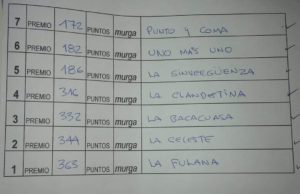 7 PREMIO 172 PUNTOS murga PUNTO Y COMA
6 PREMIO 182 PUNTOS murga UNO MAS UNO
5 PREMIO 186 PUNTOS murga LA SINVERGÜENZA
4 PREMIO 316 PUNTOS murga LA CLANDESTINA
3 PREMIO 332 PUNTOS murga LA BACACUASA
2 PREMIO 344 PUNTOS murga LA CELESTE
1 PREMIO 363 PUNTOS murga LA FULANA